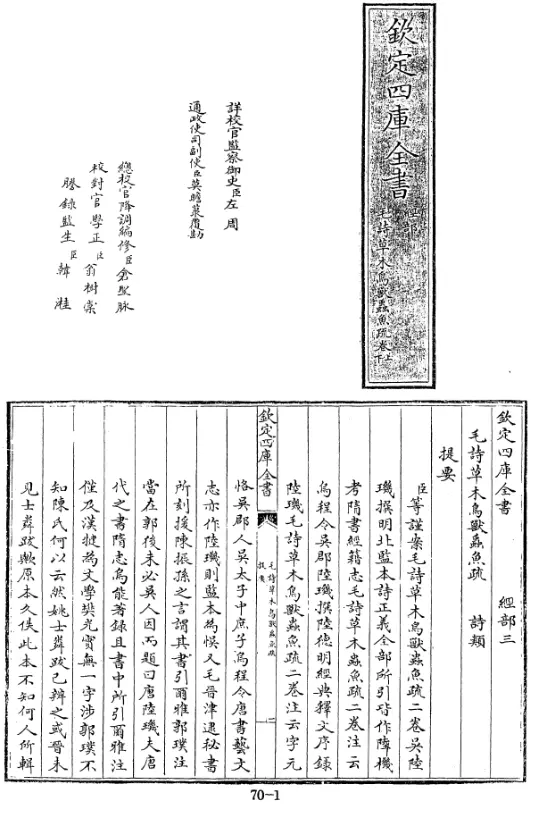 欽定四庫全書
經部
毛詩草木鳥獸蟲魚疏卷上下
詳校官監察御史臣左周
通政使司副使臣莫瞻菉覆勘
總校官降調編修臣倉聖脉
校對官學正臣翁樹棠
謄錄監生臣韓
欽定四庫全書 經部三
毛詩草木鳥獸蟲魚疏 詩類
提要
臣等謹案毛詩草木鳥獸蟲魚疏二卷吳陸
璣撰明北監本詩正義全部所引皆作陸機
考隋書經籍志毛詩草木蟲魚疏二卷注云
烏程令吳郡陸璣撰陸德明經典釋文序錄
陸璣毛詩草木鳥獸蟲魚疏二卷注云字元
欽定四庫全書
毛詩草木鳥獸蟲魚疏
提要
二
恪吳郡人吳太子中庶子烏程令唐書藝文
志亦作陸璣則監本為悞又毛晉津逮秘書
所刻援陳振孫之言謂其書引爾雅郭璞注
當在郭後未必吳人因而題曰唐陸璣夫唐
代之書隋志烏能著錄且書中所引爾雅注
僅及漢揵為文學樊光實無一字涉郭璞不
知陳氏何以云然姚士粦跋已辨之或晉未
見士粦跋歟原本久佚此本不知何人所輯
70-1